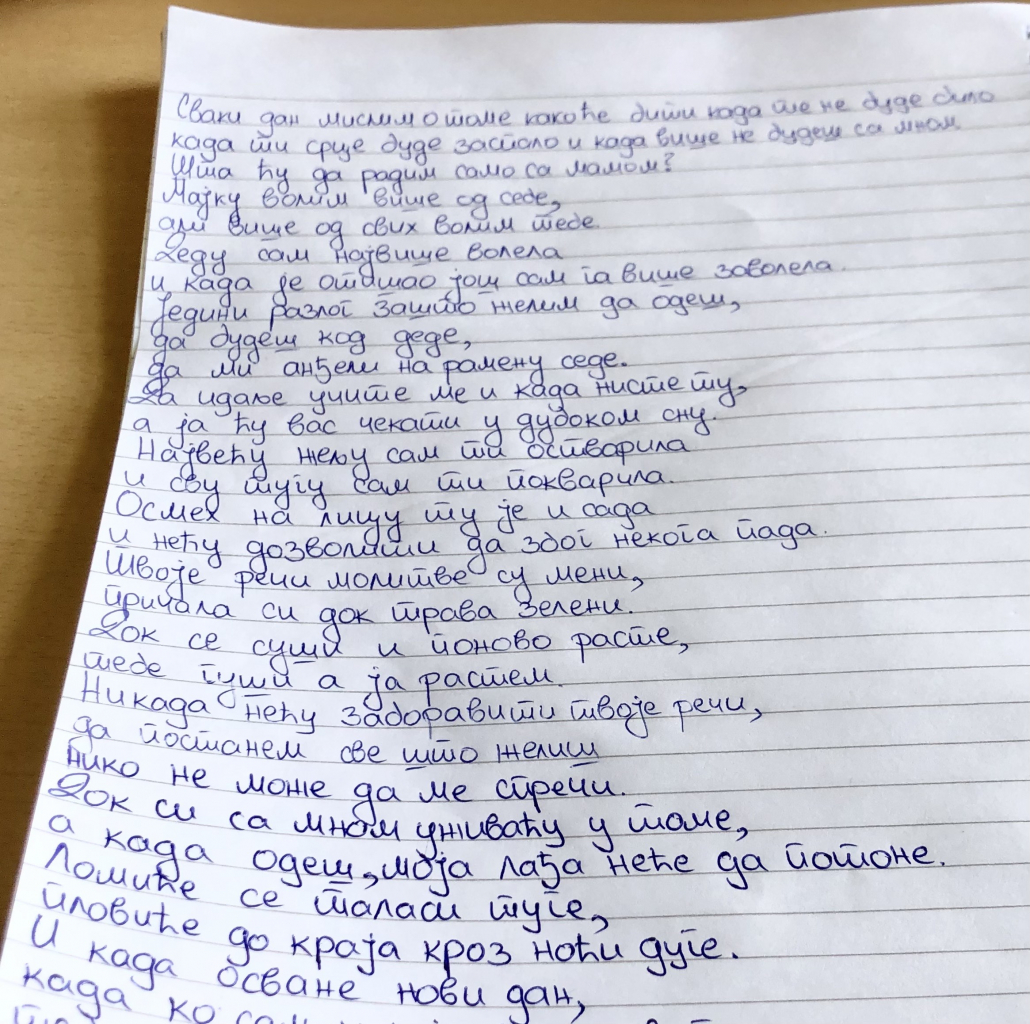 Сваки дан мислим о томе како ће бити када те не буде било
када ти срце буде застало и када више не будеш са мном
Шта ћу да радим само са мамом?
Мајку волим више од себе,
али више од свих волим тебе.
Деду сам највише волела
и када је отишао још сам га више заволела.
Једини разлог зашто желим да одеш,
да будеш код деде,
да ми анђели на рамену седе.
Да идаље учите ме и када нисте ту,
а ја ћу вас чекати у дубоком сну.
Највећу жељу сам ти остварила
и сву тугу сам ти покварила.
Осмех на лицу ту је и сада
и нећу дозволити да због некога пада.
Твоје речи молитве су мени,
причала си док трава зелени.
Док се суши и поново расте,
тебе гуши а ја растем.
Никада нећу заборавити твоје речи,
да постанем све што желиш
нико не може да ме спречи.
Док си са мном уживаћу у томе,
а када одеш, моја лађа неће да потоне.
Ломиће се таласи туге,
пловиће до краја кроз ноћи дуге.
И када осване нови дан,
када ко сам